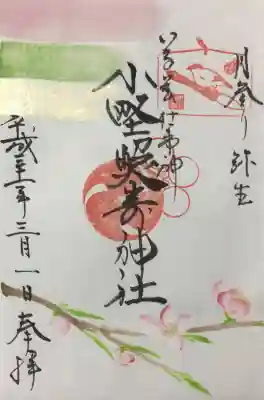 月参り 弥生
小野照崎神社
平成三十一年三月一日 奉拝